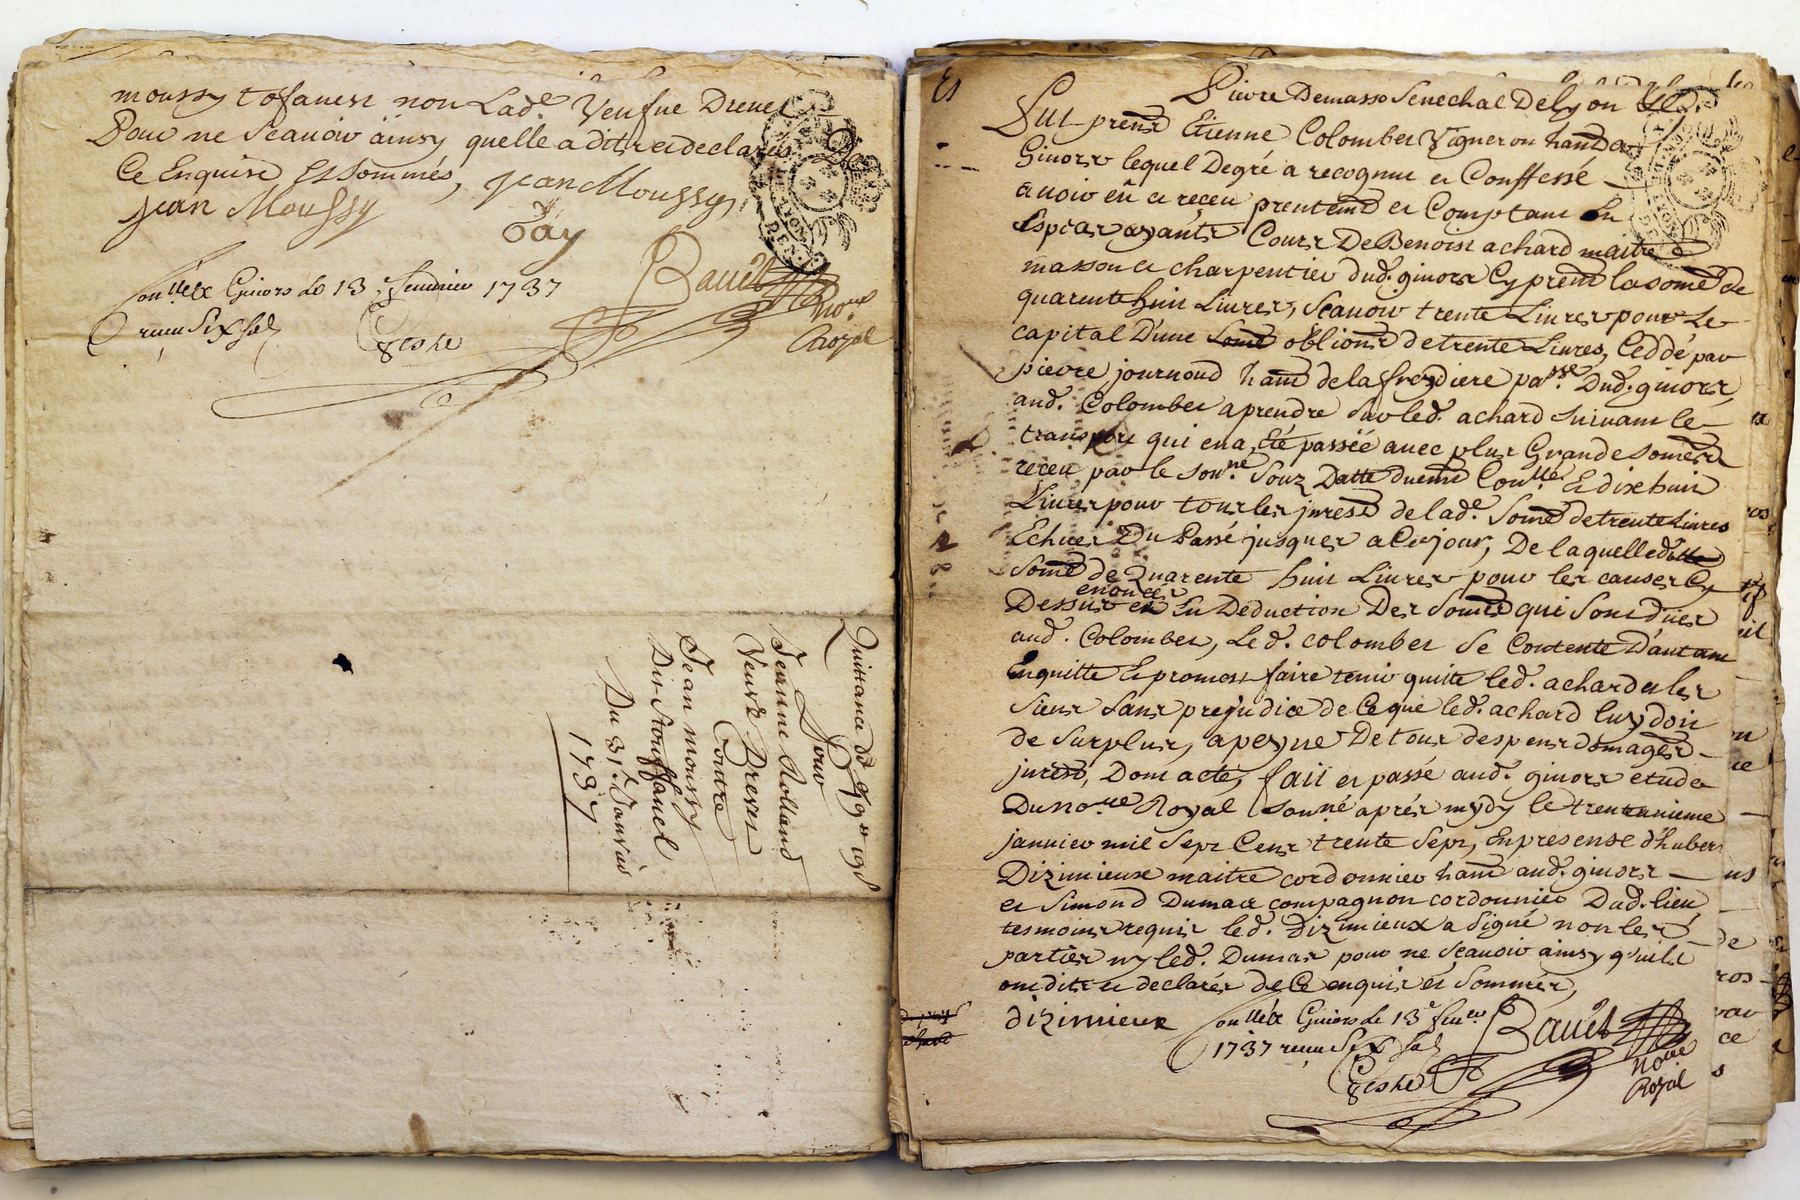 moussy non Lad.e Veufue Dreuet
Pour ne Scauoir ainsy quelle a dit et declaré De
Ce Enquise Et Sommés, Jean Moussy
jean Moussy
Bauet
Con.llé a Giuors le 13.e feurier 1737
receu Six sol
Geshe
No.re
Royal
Quittance de
Pour
Jeanne Rolland
Veuve Drevet
Contre
Jean moussy
Du 31.e Janvier
1737
Et
Pierre Demasso Senechal De Lyon
Fut present Etienne Colombet Vigneron hant de
Giuors lequel Degré a recognu et Confessé
auoir eû et receu presentemt et Comptant En
Espices ayants Cours De Benoist achard maitre
masson et charpentier dud. giuors Cy present la somé de
quarente huit Liures, Scauoir trente Liures pour Le
capital D'une oblione de trente Liures, Ceddé par
pierre journoud hant de la fredière passe. Dud. giuors
aud. Colombet a prendre sur led. achard suiuant le
transport qui en a, été passée auec plus Grande somes
receu par le sou.ne Souz Datte duemt Con.llé Et dix huit
Liures pour tous les jnrests de lad.e Somé de trente Liures
Echues Du Passé jusques a Ce jour, De laquelle ditte
Somé de Quarente huit Liures pour les causes Cy
enoncés
Dessus et En Deduction Des Somes qui Sont düer
aud. Colombet, Led. colombet Se Contente D'autant
Enquitte Et promest faire tenir quitte led. achard et les
Siens Sans prejudice de Ce que led. achard luy doit
de Surplus, a peyne De tous despens domages
jnrests, Dont acte, fait et passé aud. giuors etude
Du No.re Royal Sou.né aprés mydy le trenteunieme
januier mil Sept Cent trente Sept, En presense d'hubert
Dizimieux maitre cordonnier hant aud. giuors
et Simond Dumas compagnon cordonnier Dud. lieu
tesmoins requis led. Dizimieux a Signé non les
parties ny led. Dumas pour ne Scauoir ainsy qu'ils
ont dit et declarés de Ce enquis et Sommés,
dizimieux
Con.llé a Giuors le 13.e feu.er
1737 receu Six sol
Geshe
Bauet
No.re
Royal